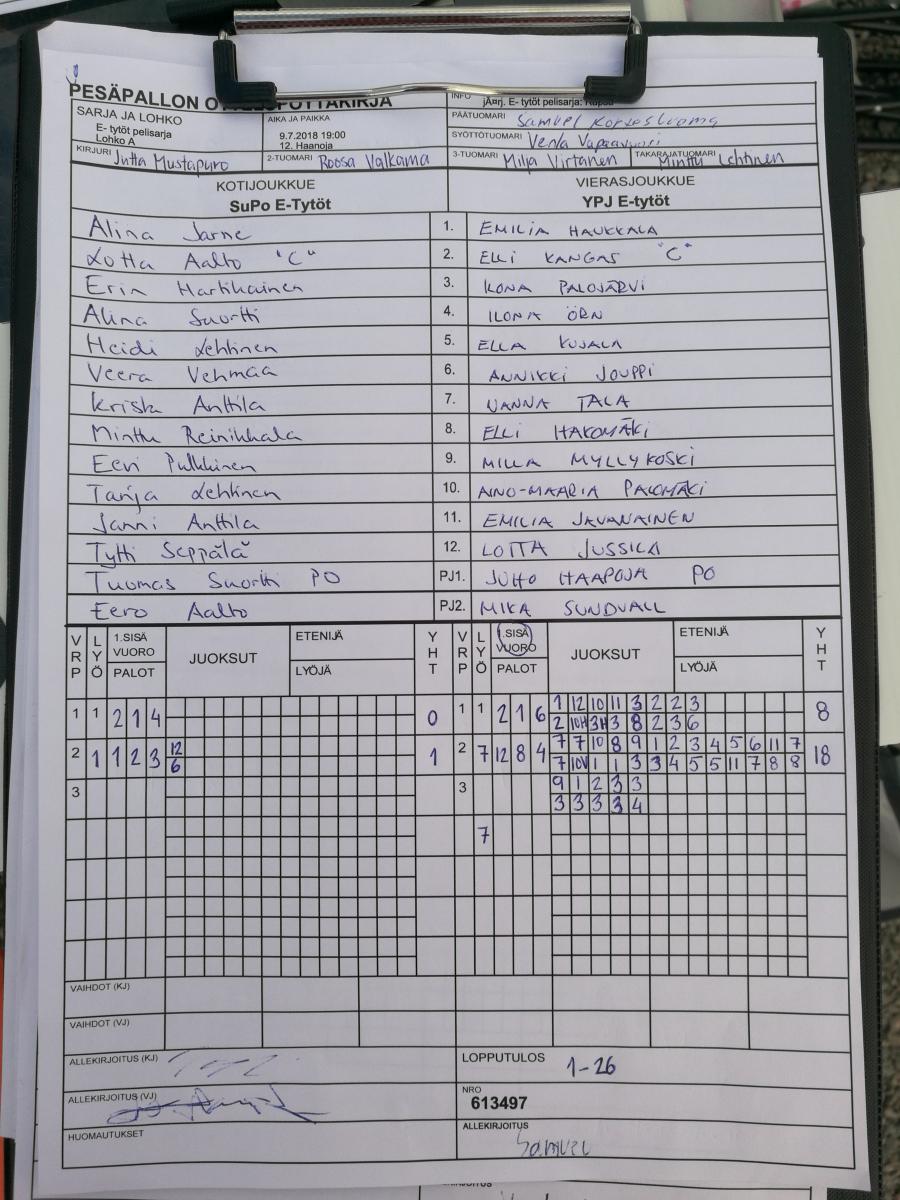 PESÄPALLON
SARJA JA LOHKO
E- tytöt pelisarja
Lohko A
AIKA JA PAIKKA
9.7.2018 19:00
12. Haanoja
INFO jÄ¤rj. E- tytöt pelisarja:
PÄÄTUOMARI Samuel
SYÖTTÖTUOMARI Venla
KIRJURI Jutta Mustapuro
2-TUOMARI Roosa Valkama
3-TUOMARI Milja Virtanen
TAKARAJATUOMARI Minttu Lehtinen
KOTIJOUKKUE
SuPo E-Tytöt
VIERASJOUKKUE
YPJ E-tytöt
Alina Jarne 1. EMILIA HAUKKALA
Lotta Aalto "C" 2. ELLI KANGAS "C"
Erin Hartikainen 3. ILONA PALOJÄRVI
Alina Suortti 4. ILONA ÖRN
Heidi Lehtinen 5. ELLA KUJALA
Veera Vehmaa 6. ANNIKKI JOUPPI
Krista Anttila 7. VANNA TALA
Minttu Reinikkala 8. ELLI HAKOMÄKI
Eevi Pulkkinen 9. MILLA MYLLYKOSKI
Tanja Lehtinen 10. AINO-MAARIA PALOMÄKI
Janni Anttila 11. EMILIA JAVANAINEN
Tytti Seppälä 12. LOTTA JUSSILA
Tuomas Suortti PO PJ1. JUHO HAAPOJA PO
Eero Aalto PJ2. MIKA SUNDVALL
VRP LYÖ 1.SISÄ VUORO PALOT JUOKSUT ETENIJÄ LYÖJÄ YHT VRP LYÖ 1.SISÄ VUORO PALOT JUOKSUT ETENIJÄ LYÖJÄ YHT
1 1 2 1 4 0 1 1 2 1 6 1 12 10 11 3 2 2 3 8
2 10H 3H 3 8 2 3 6
2 1 1 2 3 12 1 2 7 12 8 4 7 7 10 8 9 1 2 3 4 5 6 11 7 18
6 7 10V 1 1 3 3 4 5 5 11 7 8 8
3 3 9 1 2 3 3
3 3 3 3 4
7
VAIHDOT (KJ)
VAIHDOT (VJ)
ALLEKIRJOITUS (KJ)
LOPPUTULOS 1-26
ALLEKIRJOITUS (VJ)
NRO
613497
HUOMAUTUKSET
ALLEKIRJOITUS
Samuel